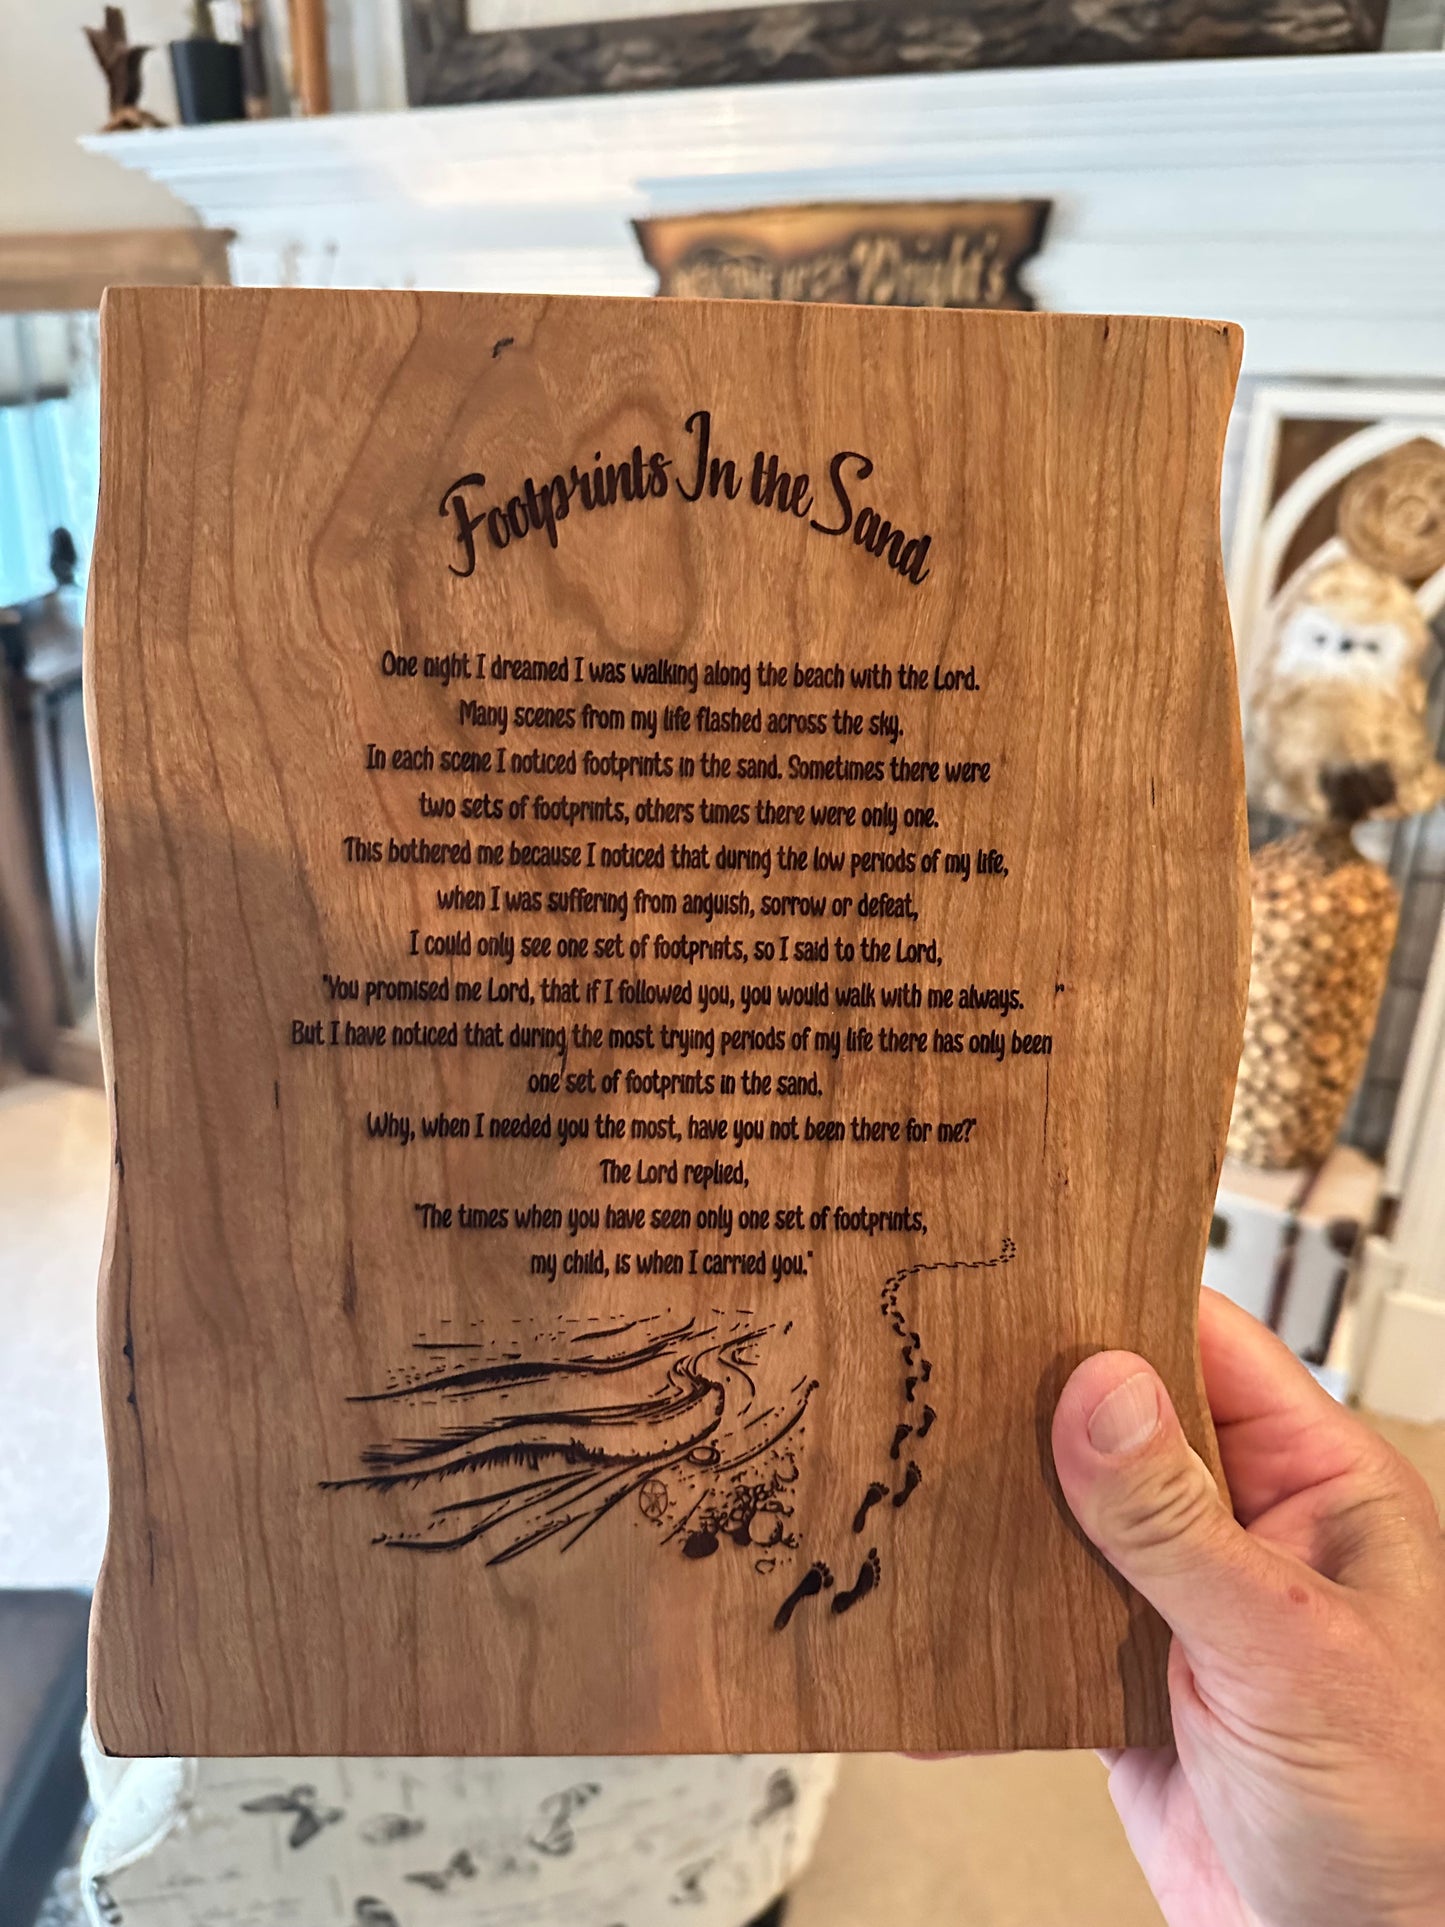 Wright's
Footprints In the Sand
One night I dreamed I was walking along the beach with the Lord.
Many scenes from my life flashed across the sky.
In each scene I noticed footprints in the sand. Sometimes there were
two sets of footprints, others times there were only one.
This bothered me because I noticed that during the low periods of my life,
when I was suffering from anguish, sorrow or defeat,
I could only see one set of footprints, so I said to the Lord,
"You promised me Lord, that if I followed you, you would walk with me always. "
But I have noticed that during the most trying periods of my life there has only been
one set of footprints in the sand.
Why, when I needed you the most, have you not been there for me?"
The Lord replied,
"The times when you have seen only one set of footprints,
my child, is when I carried you."